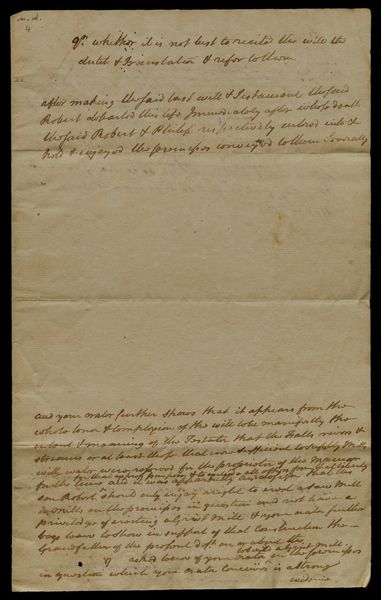 n.d.
4
Qr. whether it is not best to recite the will the
dutch & Translation & refer to them
after making the said last will & Testament the said
Robert departed this life Immediately after whose death
the said Robert & Philip respectively entered into &
held & enjoyed the premises conveyed to them severally
and your orator further shews that it appears from the
whole tenor & complexion of the will to be manifestly the
intent & meaning of the Testator that the Falls rivers &
streams or at least so far that were sufficient to supply Mills
with water were reserved for the proprietor of the Manor
for the time being and it was apparently his design that his
son Robert should only enjoy a right to erect a saw Mill
or Mills on the premises in question and not have a
priviledge of erecting a Grist Mill & your orator further
begs leave to shew in support of that construction the
Grandfather of the present Dft. on or about the
asked leave of your orator to erect a Grist Mill
on the premises
in question which your orator conceives is a strong
evidence